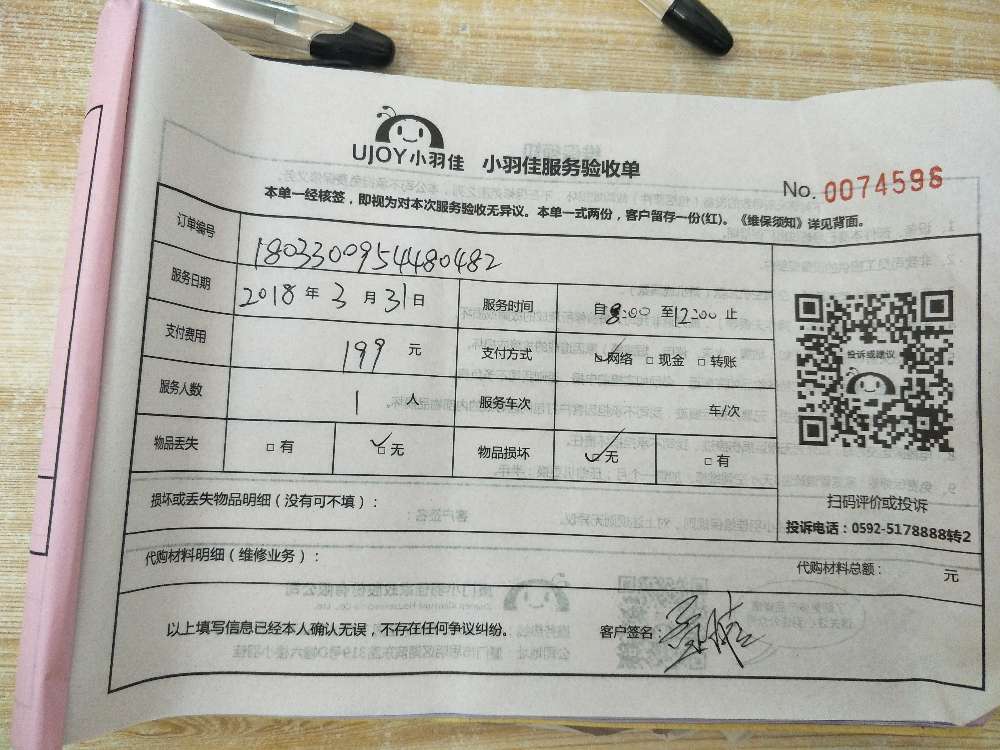 UJOY小羽佳 小羽佳服务验收单
No. 0074596
本单一经核签，即视为对本次服务验收无异议。本单一式两份，客户留存一份(红)。《维保须知》详见背面。
订单编号 1803300954480482
服务日期 2018年3月31日 服务时间 自8:00至12:00止
支付费用 199元 支付方式 □网络 □现金 □转账
服务人数 1人 服务车次 车/次
物品丢失 □有 □无 物品损坏 □无 □有
投诉或建议
扫码评价或投诉
投诉电话：0592-5178888转2
损坏或丢失物品明细（没有可不填）：
代购材料明细（维修业务）：
代购材料总额： 元
以上填写信息已经本人确认无误，不存在任何争议纠纷。 客户签名：